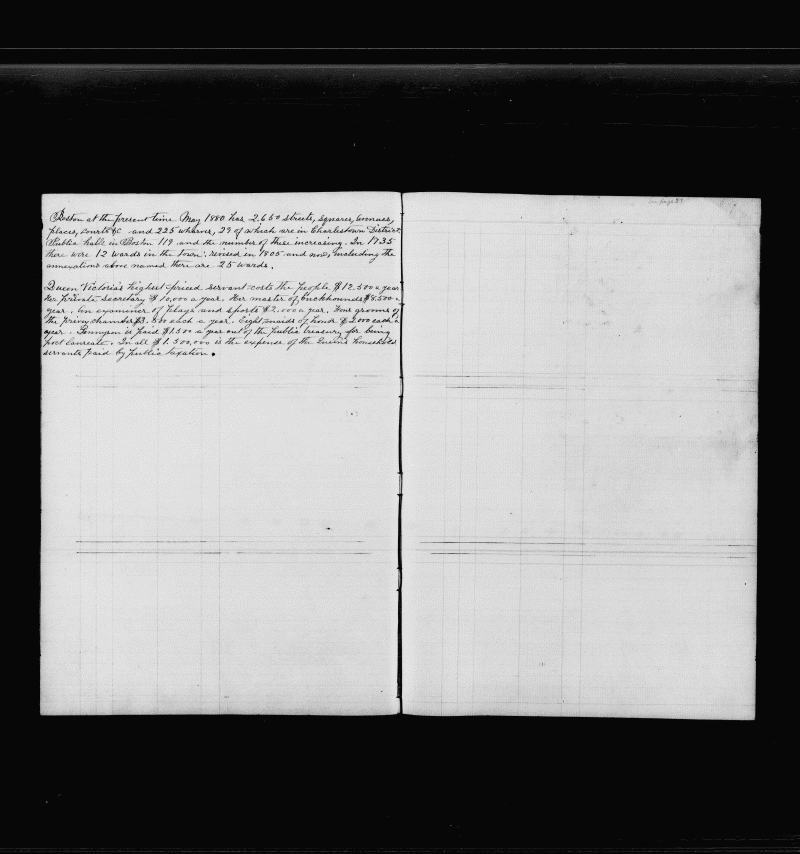 Boston at the present time May 1880 has 2.650 streets, squares, avenues,
places, courts &c and 225 wharves, 29 of which are in Charlestown District.
Public halls in Boston 119 and the number of these increasing. In 1735
there were 12 wards in the town: revised in 1805 and now, including the
annexations above named there are 25 wards.
Queen Victoria's highest priced servant costs the people $12.500 a year
Her private secretary $10,000 a year. Her master of buckhounds $8.500 a
year. An examiner of plays and sports $2.000 a year. Four grooms of
the privy chamber $3.500 each a year. Eight maids of honor $2.000 each a
year. Tennyson is paid $1.500 a year out of the public treasury for being
poet laureate. In all $1.500,000 is the expense of the Queen's household
servants paid by public taxation.